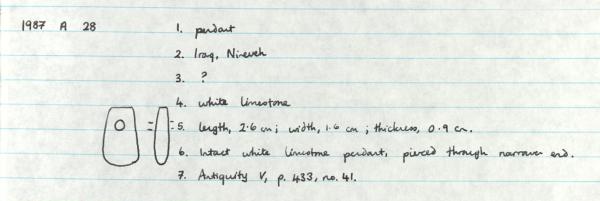 1987 A 28
1. pendant
2. Iraq, Nineveh
3. ?
4. white limestone
5. length, 2.6 cm; width, 1.6 cm; thickness, 0.9 cm.
6. Intact white limestone pendant, pierced through narrower end.
7. Antiquity V, p. 433, no. 41.